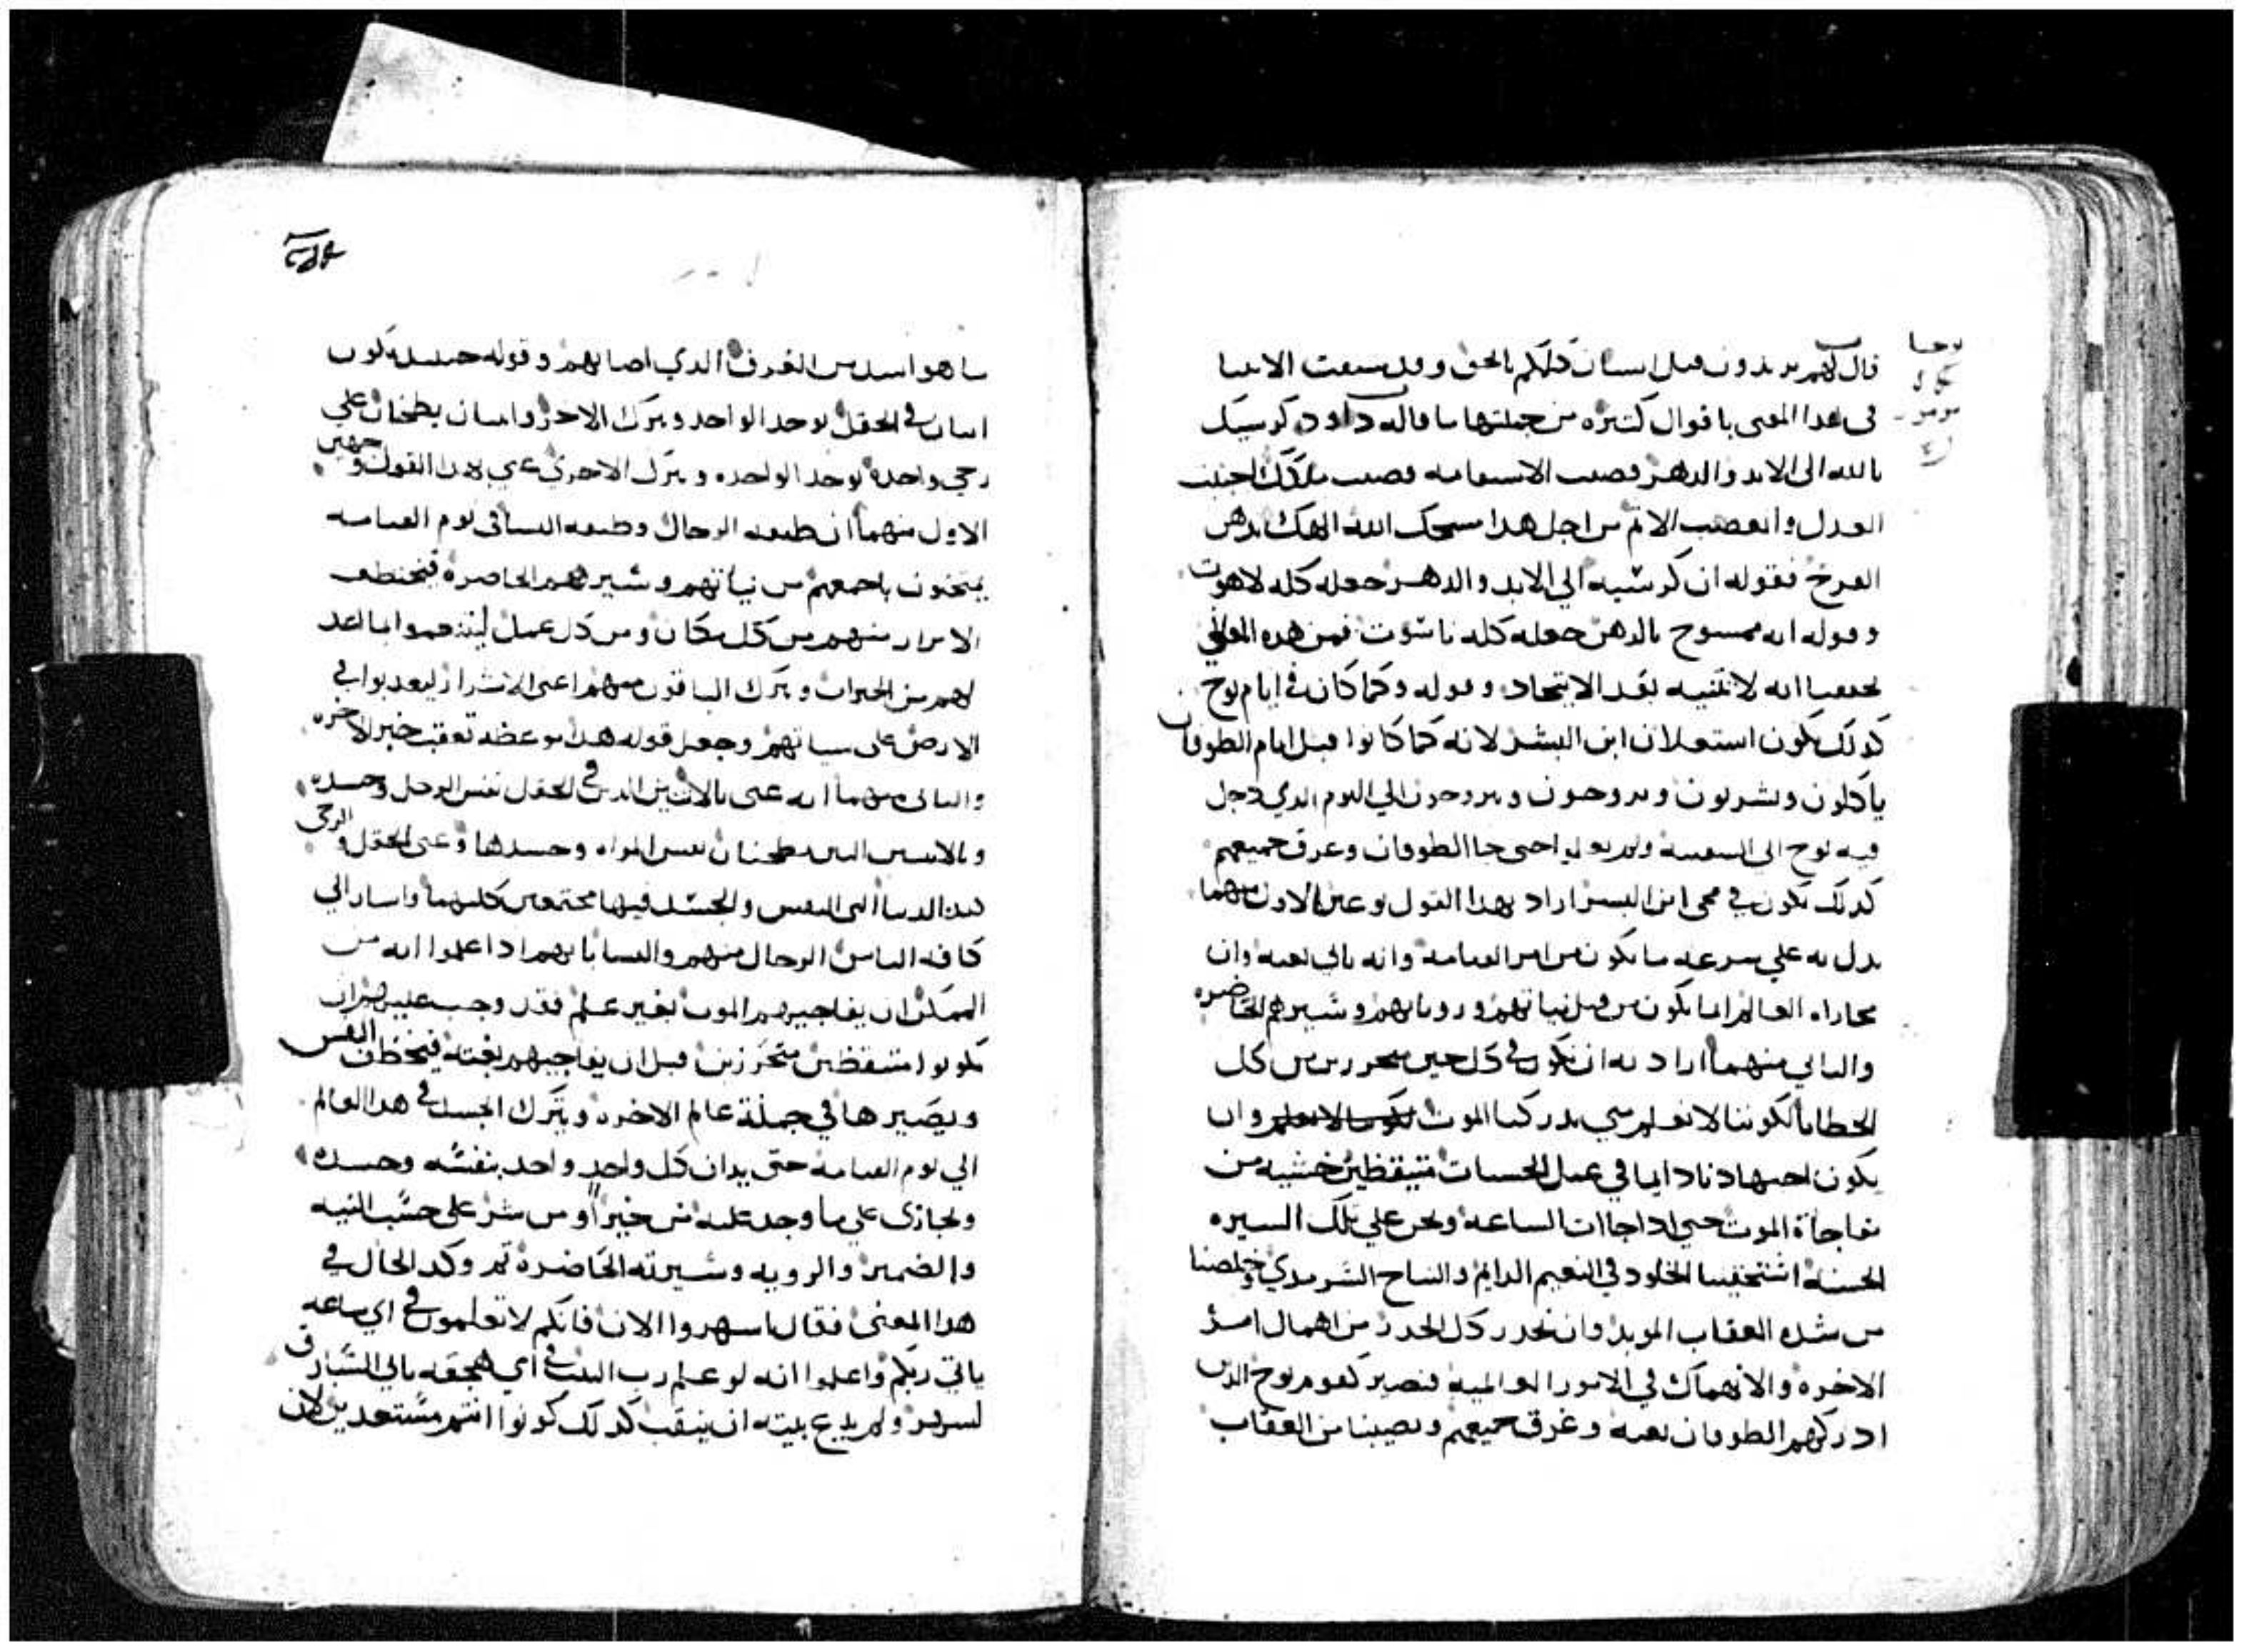 يوحنا
مزمور
قال لهم تريدون قتل انسان كلمكم بالحق وقد سبقت الانبيا
في هدا المعنى باقوال كتيره من جملتها ما قاله داود كرسيك
يالله الى الابد والدهر قصيب الاستقامه قصيب ملكك احببت
العدل وابغضت الاتم من اجل هدا مسحك الله الهك بدهن
الفرح فقوله ان كرسيه الي الابد والدهر جعله كله لاهوت
وقوله انه ممسوح بالدهن جعله كله ناسوت فمن هده المعاني
تحققنا انه لا تتنيه بعد الاتحاد وقوله وكما كان في ايام نوح
كدلك يكون استعلان ابن البشر لانه كما كانوا قبل ايام الطوفان
ياكلون ويشربون ويتزوجون ويزوجون الي اليوم الدي دخل
فيه نوح الى السفينه ولم يعلموا حتى جا الطوفان وغرق جميعهم
كدلك يكون في مجى ابن البشر اراد بهدا القول نوعين الاول منهما
يدل به علي سرعه ما يكون من امر القيامه وانه ياتي بغته وان
مجاراه العالم انما يكون من قبل نياتهم وروياتهم وسيرهم الحاضره
والتاني منهما اراد به ان نكون في كل حين متحررين من كل
الخطايا لكوننا لا نعلم متي يدركنا الموت لكوننا لا نعلم وان
يكون اجتهادنا دايما في عمل الحسنات متيقظين خشيه من
مفاجاة الموت حتي ادا جاات الساعه ونحن علي تلك السيره
الحسنه استحقينا الخلود في النعيم الدايم والنياح السرمدي وخلصنا
من شده العقاب الموبد وان نحدر كل الحدر من اهمال امر
الاخره والانهماك في الامور العالميه فنصير كقوم نوح الدين
ادركهم الطوفان بغته وغرق جميعهم ويصيبنا من العقاب
ما هو اشد من الغرق الدي اصابهم وقوله حينيد يكون
اتنان في الحقل يوخد الواحد ويترك الاخر واتنتان يطحنان علي
رحي واحده توخد الواحده وتترك الاخري عني بهدا القول وجهين
الاول منهما ان طبيعه الرجال وطبيعه النسا في يوم القيامه
يمتحنون باجمعهم من نياتهم وسيرهم الحاضره فيختطف
الابرار منهم من كل مكان ومن كل عمل ليتنعموا بما اعد
لهم من الخيرات ويترك الباقون منهم اعنى الاشرار ليعدبوا في
الارض على سياتهم وجعل قوله هدا موعظه تعقب خبر الاخره
والتانى منهما انه عنى بالاتنين الدين في الحقل نفس الرجل وجسده
وبالاتنتين اللتين يطحنان نفس المراه وجسدها وعنى بالحقل والرحى
هده الدنيا التى النفس والجسد فيها مجتمعين كليهما واشار الي
كافه الناس الرجال منهم والنسا بانهم ادا علموا انه من
الممكن ان يفاجيهم الموت بغير علم فقد وجب عليهم ان
يكونوا متيقظين متحرزين قبل ان يفاجيهم بغته فيختطف النفس
ويصيرها في جملة عالم الاخره ويترك الجسد في هدا العالم
الي يوم القيامه حتى يدان كل واحد واحد بنفسه وجسده
ويجازى علي ما وجد عليه من خير او من شر على حسب النيه
والضمير والرويه وسيرته الحاضره تم وكد الحال في
هدا المعنى فقال اسهروا الان فانكم لا تعلمون في اي ساعه
ياتي ربكم واعلموا انه لو علم رب البيت في اي هجعه ياتي السارق
لسهر ولم يدع بيته ان ينقب كدلك كونوا انتم مستعدين لان